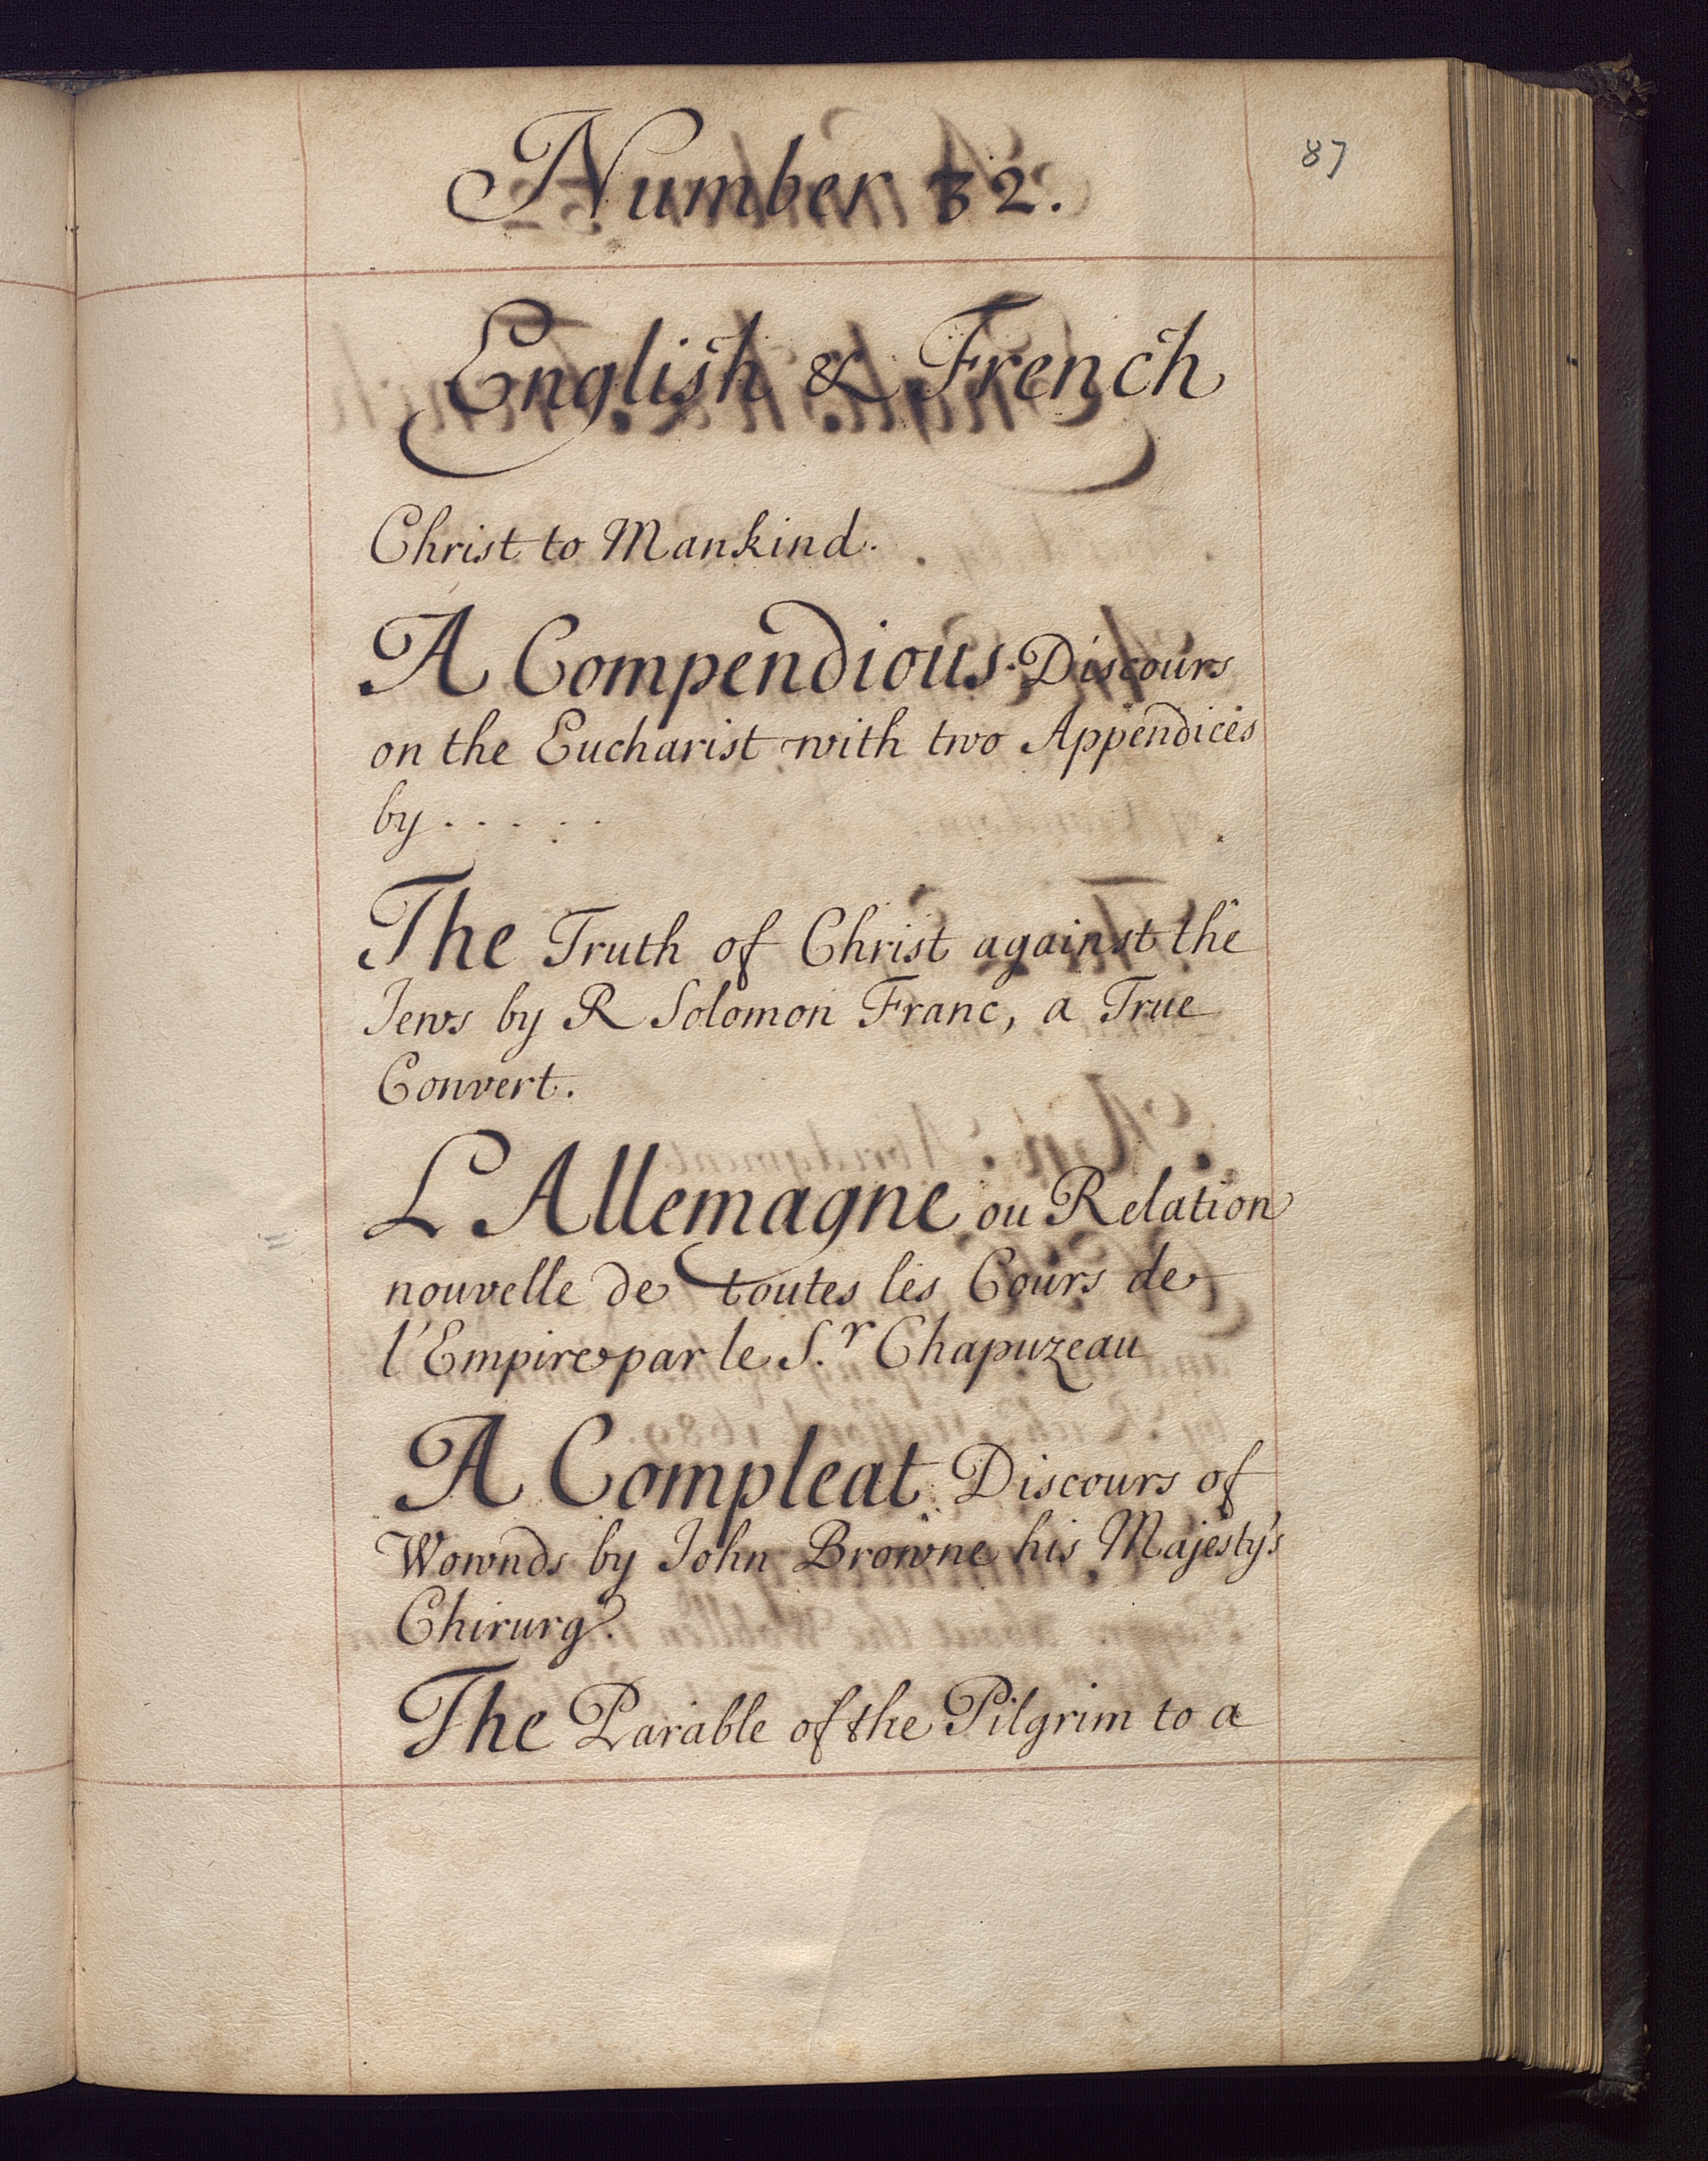 87
Number 32.
English & French
Christ to Mankind.
A Compendious Discours
on the Eucharist with two Appendices
by . . . . .
The Truth of Christ against the
Jews by R Solomon Franc, a True
Convert.
L Allemagne ou Relation
nouvelle de toutes les Cours de
l'Empire par le S.r Chapuzeau
A Compleat Discours of
Wownds by John Browne his Majesty's
Chirurg.
The Parable of the Pilgrim to a